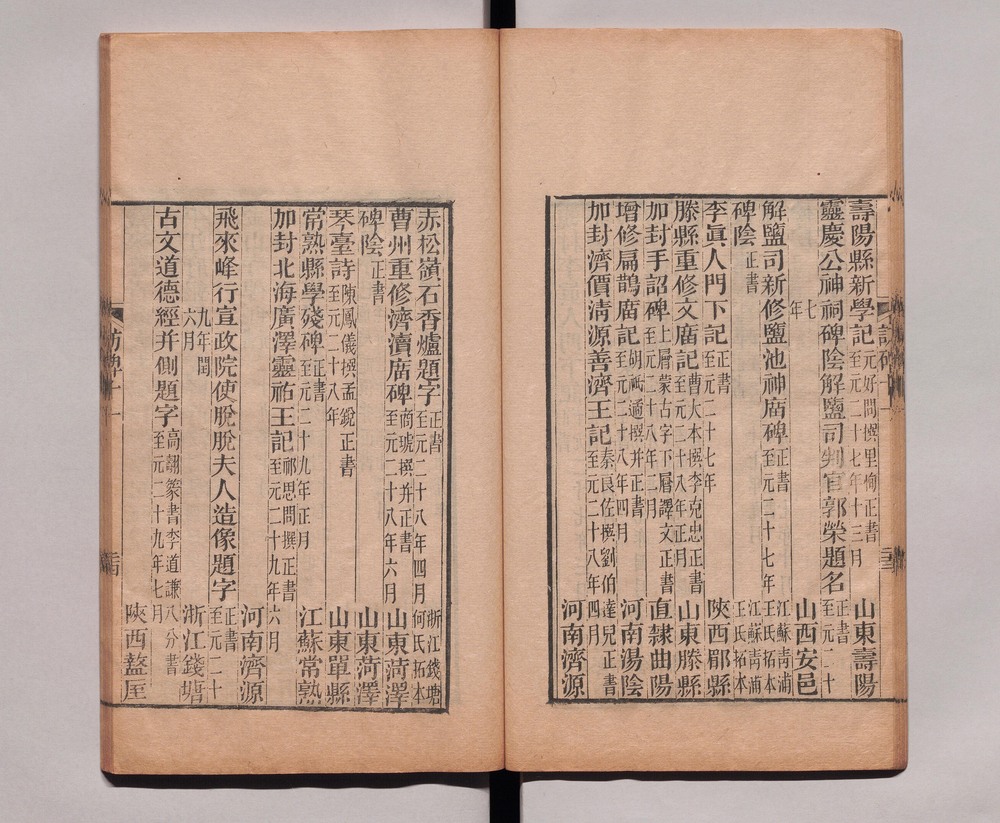 壽陽縣新學記 元好問撰里人正書 至元二十七年十三月 山東壽陽
靈慶公神祠碑陰解鹽司判官郭榮題名 正書 至元二十
七年 山西安邑
解鹽司新修鹽池神庿碑 正書 至元二十七年 江蘇靑浦王氏拓本
碑陰 正書 江蘇靑浦王氏拓本
李眞人門下記 正書 至元二十七年 陝西郿縣
滕縣重修文庿記 曹大本撰李克忠正書 至元二十八年正月 山東滕縣
加封手詔碑 上層蒙古字下層譯文正書 至元二十八年二月 直隸曲陽
增修扁鵲庿記 胡祗遹撰并正書 至元二十八年四月 河南湯陰
加封濟價淸源善濟王記 秦良佐撰劉伯達兒正書 至元二十八年四月 河南濟源
赤松嶺石香爐題字 正書 至元二十八年四月 浙江錢塘何氏拓本
曹州重修濟瀆庿碑 商琥撰并正書 至元二十八年六月 山東菏澤
碑陰 正書 山東菏澤
琴臺詩 陳鳳儀撰孟銳正書 至元二十八年 山東單縣
常熟縣學殘碑 正書 至元二十九年正月 江蘇常熟
加封北海廣澤靈祐王記 祁思問撰正書 至元二十九年六月
河南濟源
飛來峰行宣政院使脫脫夫人造像題字 正書 至元二十
九年閏六月 浙江錢塘
古文道德經并側題字 高翿篆書李道謙八分書 至元二十九年七月 陝西盩厔
訪碑十一